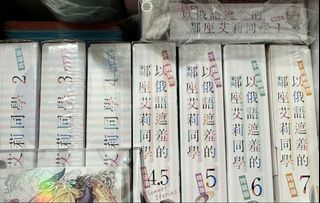 以俄語遮羞的
鄰座艾莉同學
艾莉同學 2
艾莉同學 3
艾莉同學 4
以俄語遮羞的
鄰座艾莉同學 4.5
Stories
以俄語遮羞的
鄰座艾莉同學 5
以俄語遮羞的
鄰座艾莉同學 6
以俄語遮羞的
鄰座艾莉同學 7